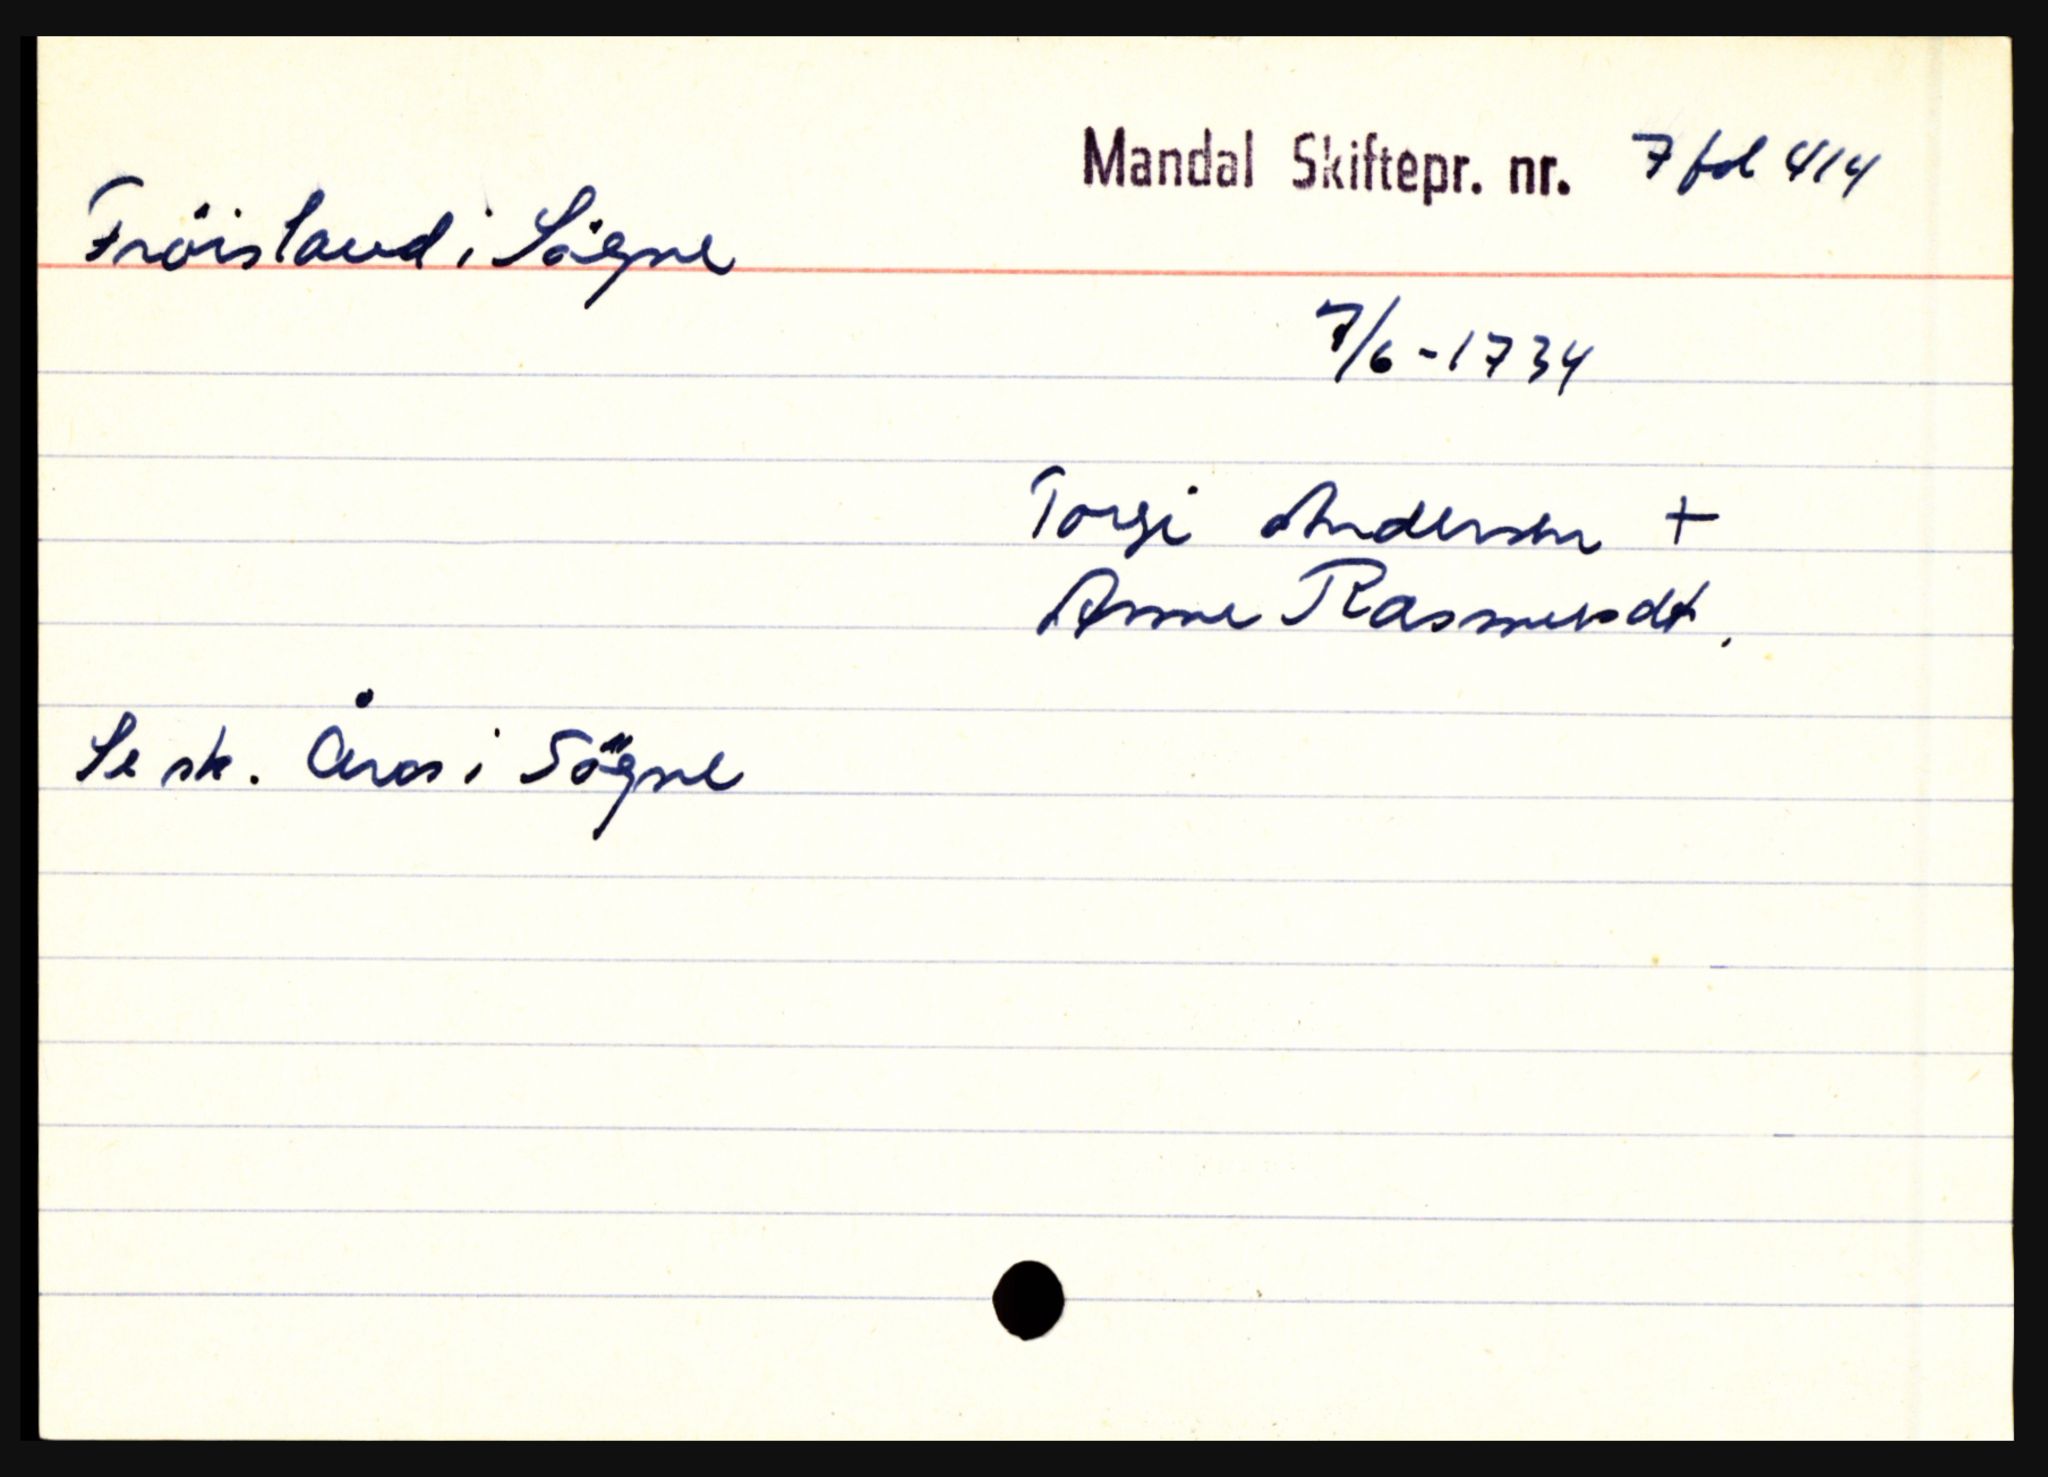 Mandal Skiftepr. nr. 7 fol 414
Fröisland i Sögne
7/6-1734
Torgi Andersen +
Anne Rasmusdt.
Se sk. Åros i Sögne